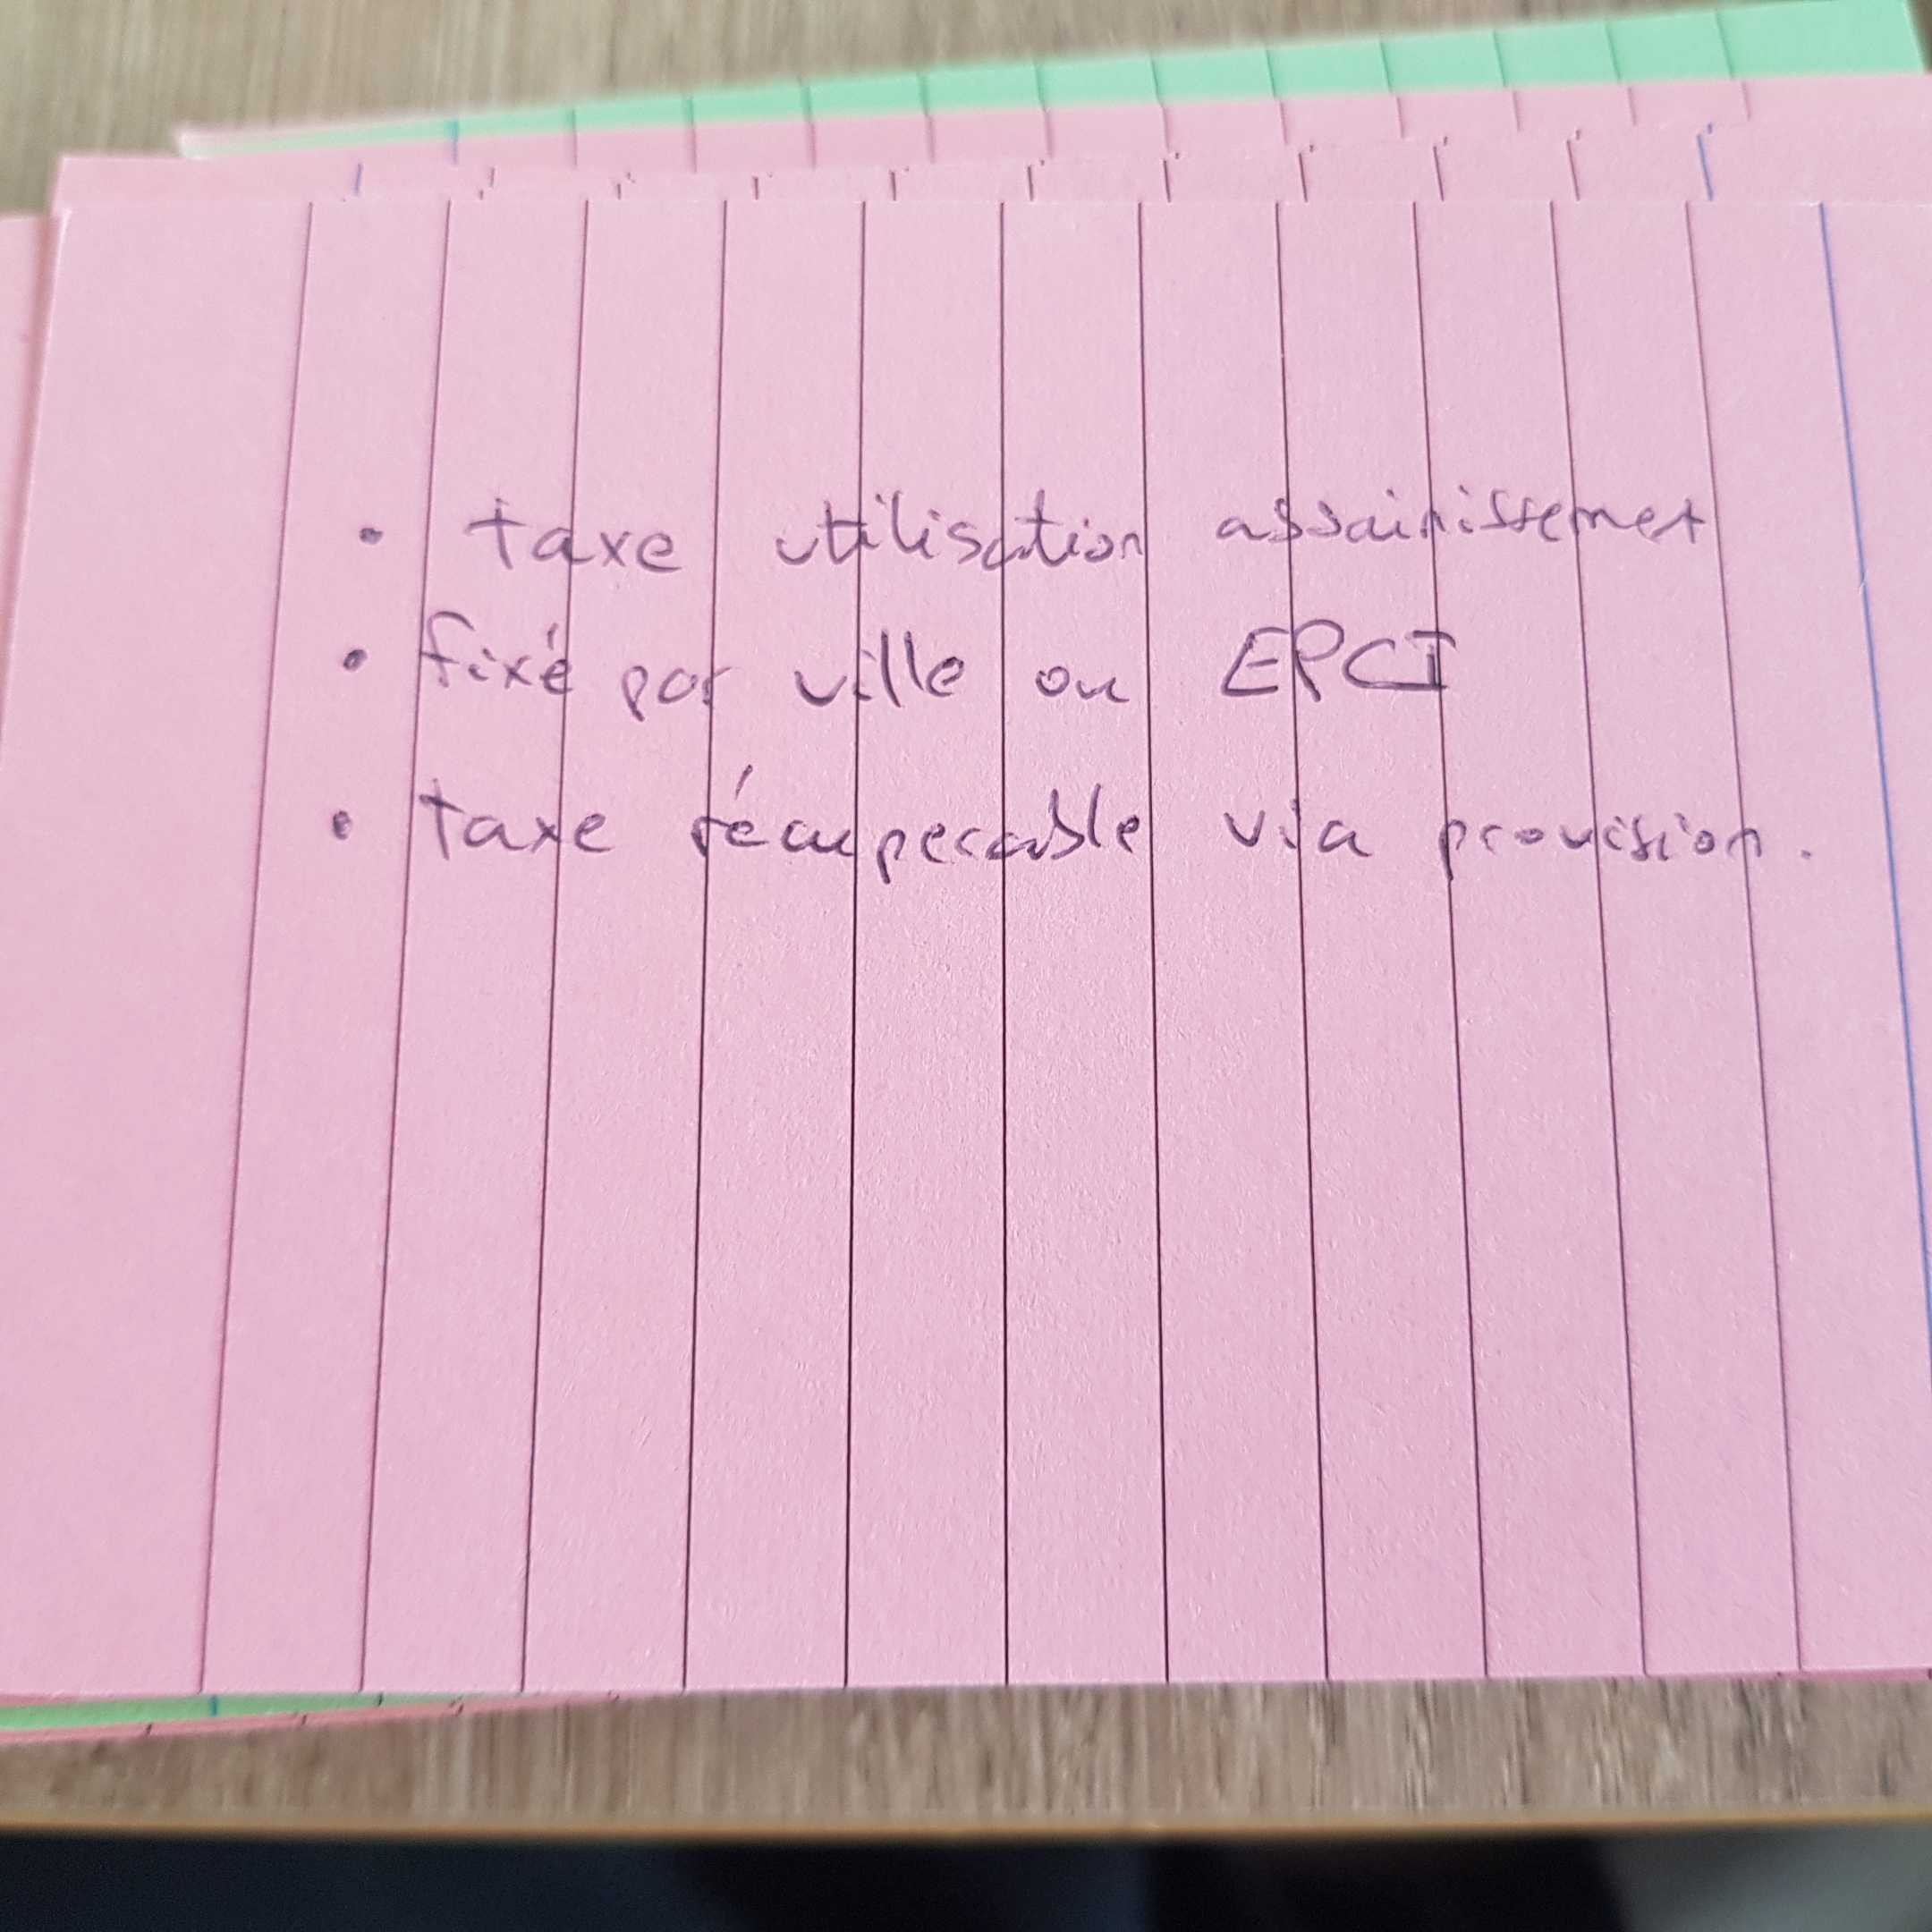 • taxe utilisation assainissemet
• fixé par ville ou EPCI
• taxe récuperable via provision.